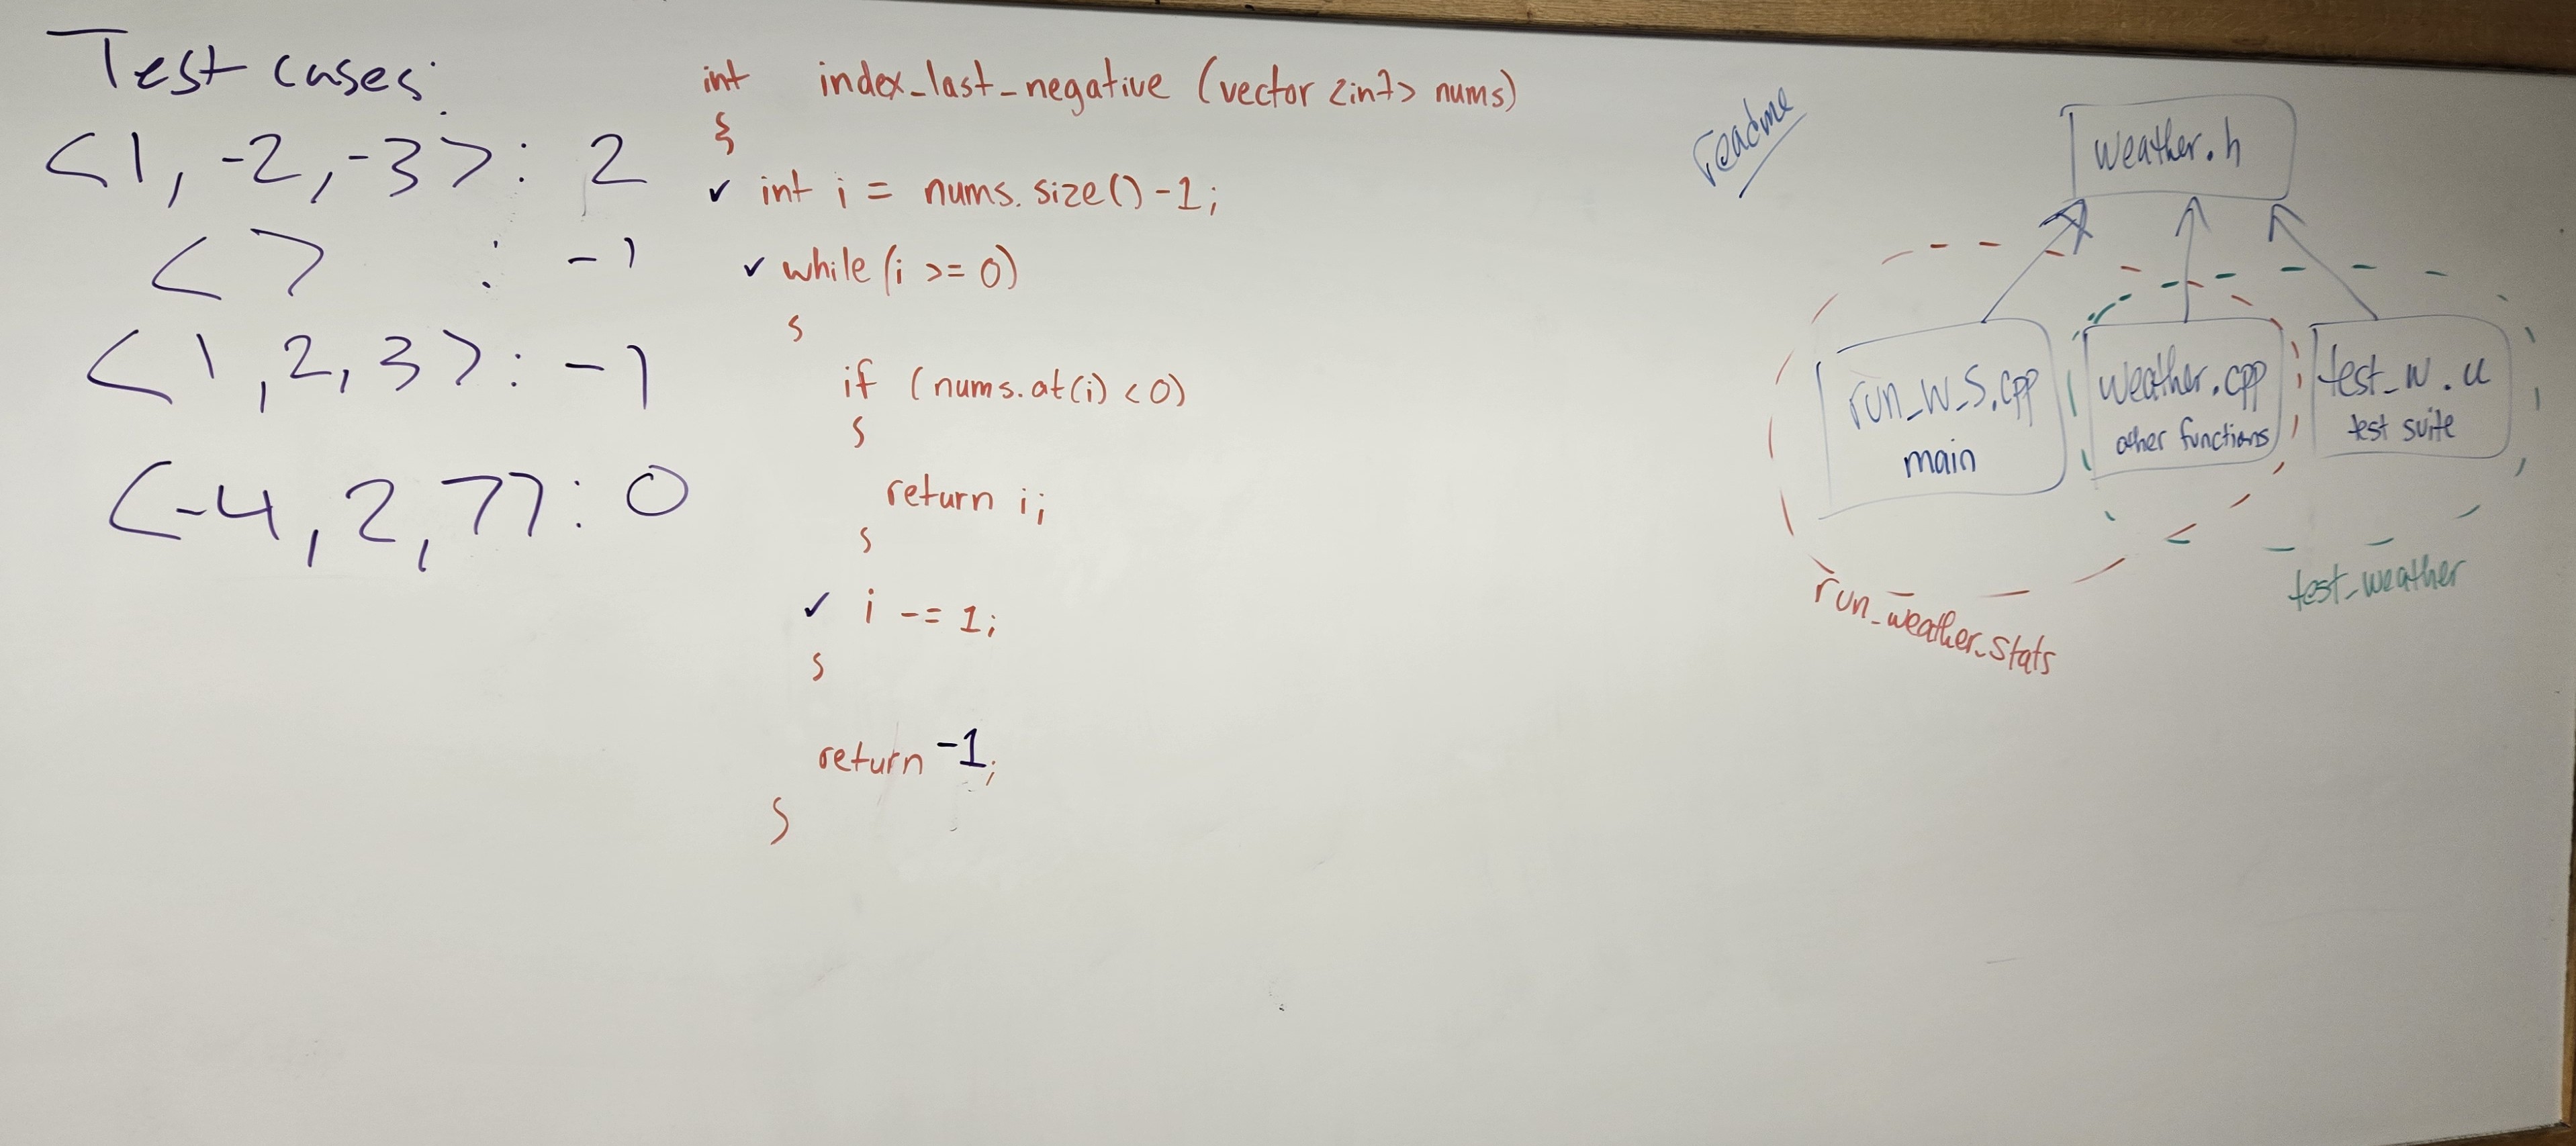 Test cases:
<1, -2, -3>: 2
< > : -1
<1, 2, 3>: -1
<-4, 2, 7>: 0
int index_last_negative (vector <int> nums)
{
✓ int i = nums.size() -1;
✓ while (i >= 0)
{
if (nums.at(i) < 0)
{
return i;
}
✓ i -= 1;
}
return -1;
}
readme
weather.h
run_w_s.cpp
main
weather.cpp
other functions
test_w.cc
test suite
run_weather_stats
test_weather